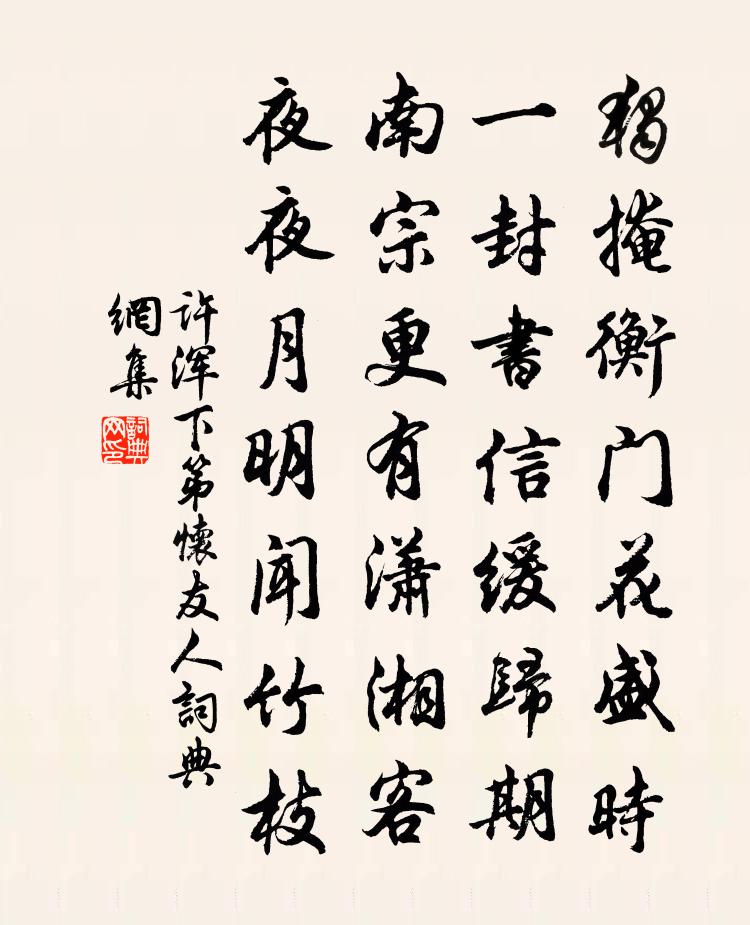 獨掩衡门花盛時
一封書信缓歸期
南宗更有瀟湘客
夜夜月明聞竹枝
許渾下第懷友人詞典
網集
詞典
网印